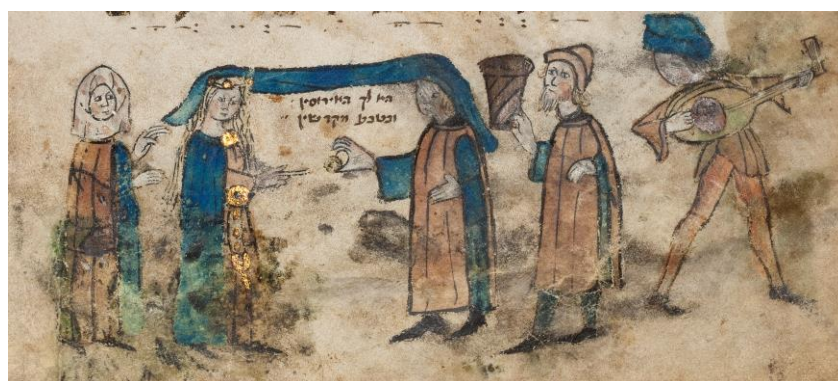 הא לך האירוסין
וטבעת הקדשין